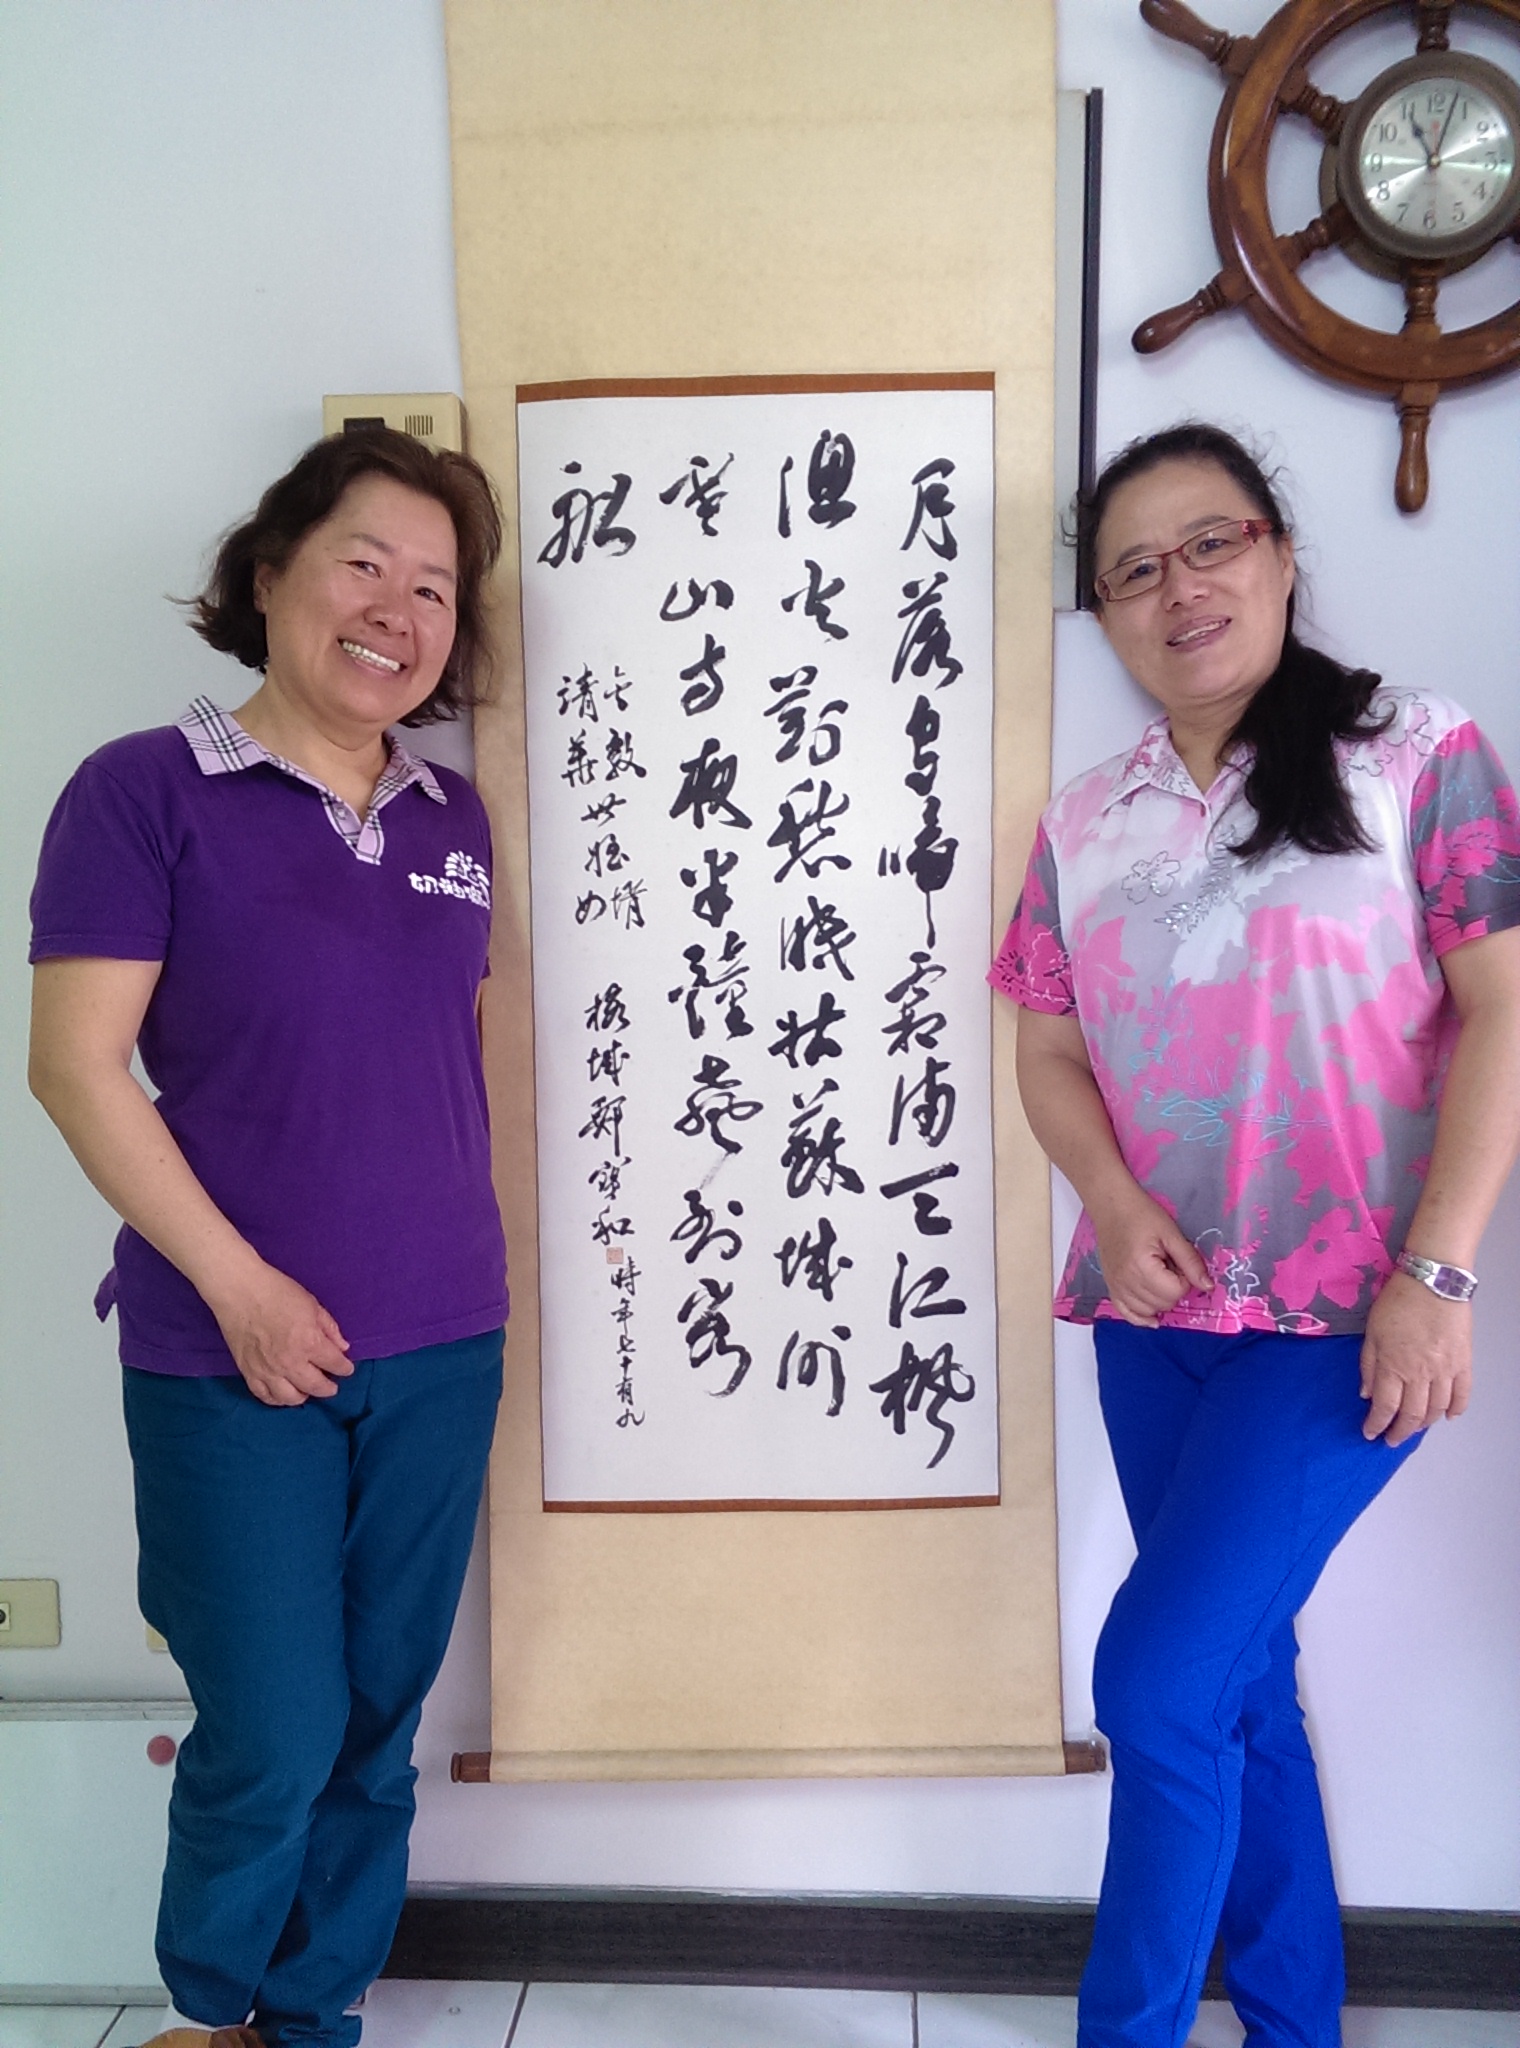 月落烏啼霜滿天江楓
漁火對愁眠姑蘇城外
寒山寺夜半鐘聲到客
船
壻
請華世姪女
榕城鄭寶和
時年七十有九
12 1 2 3 4 5 6 7 8 9 10 11